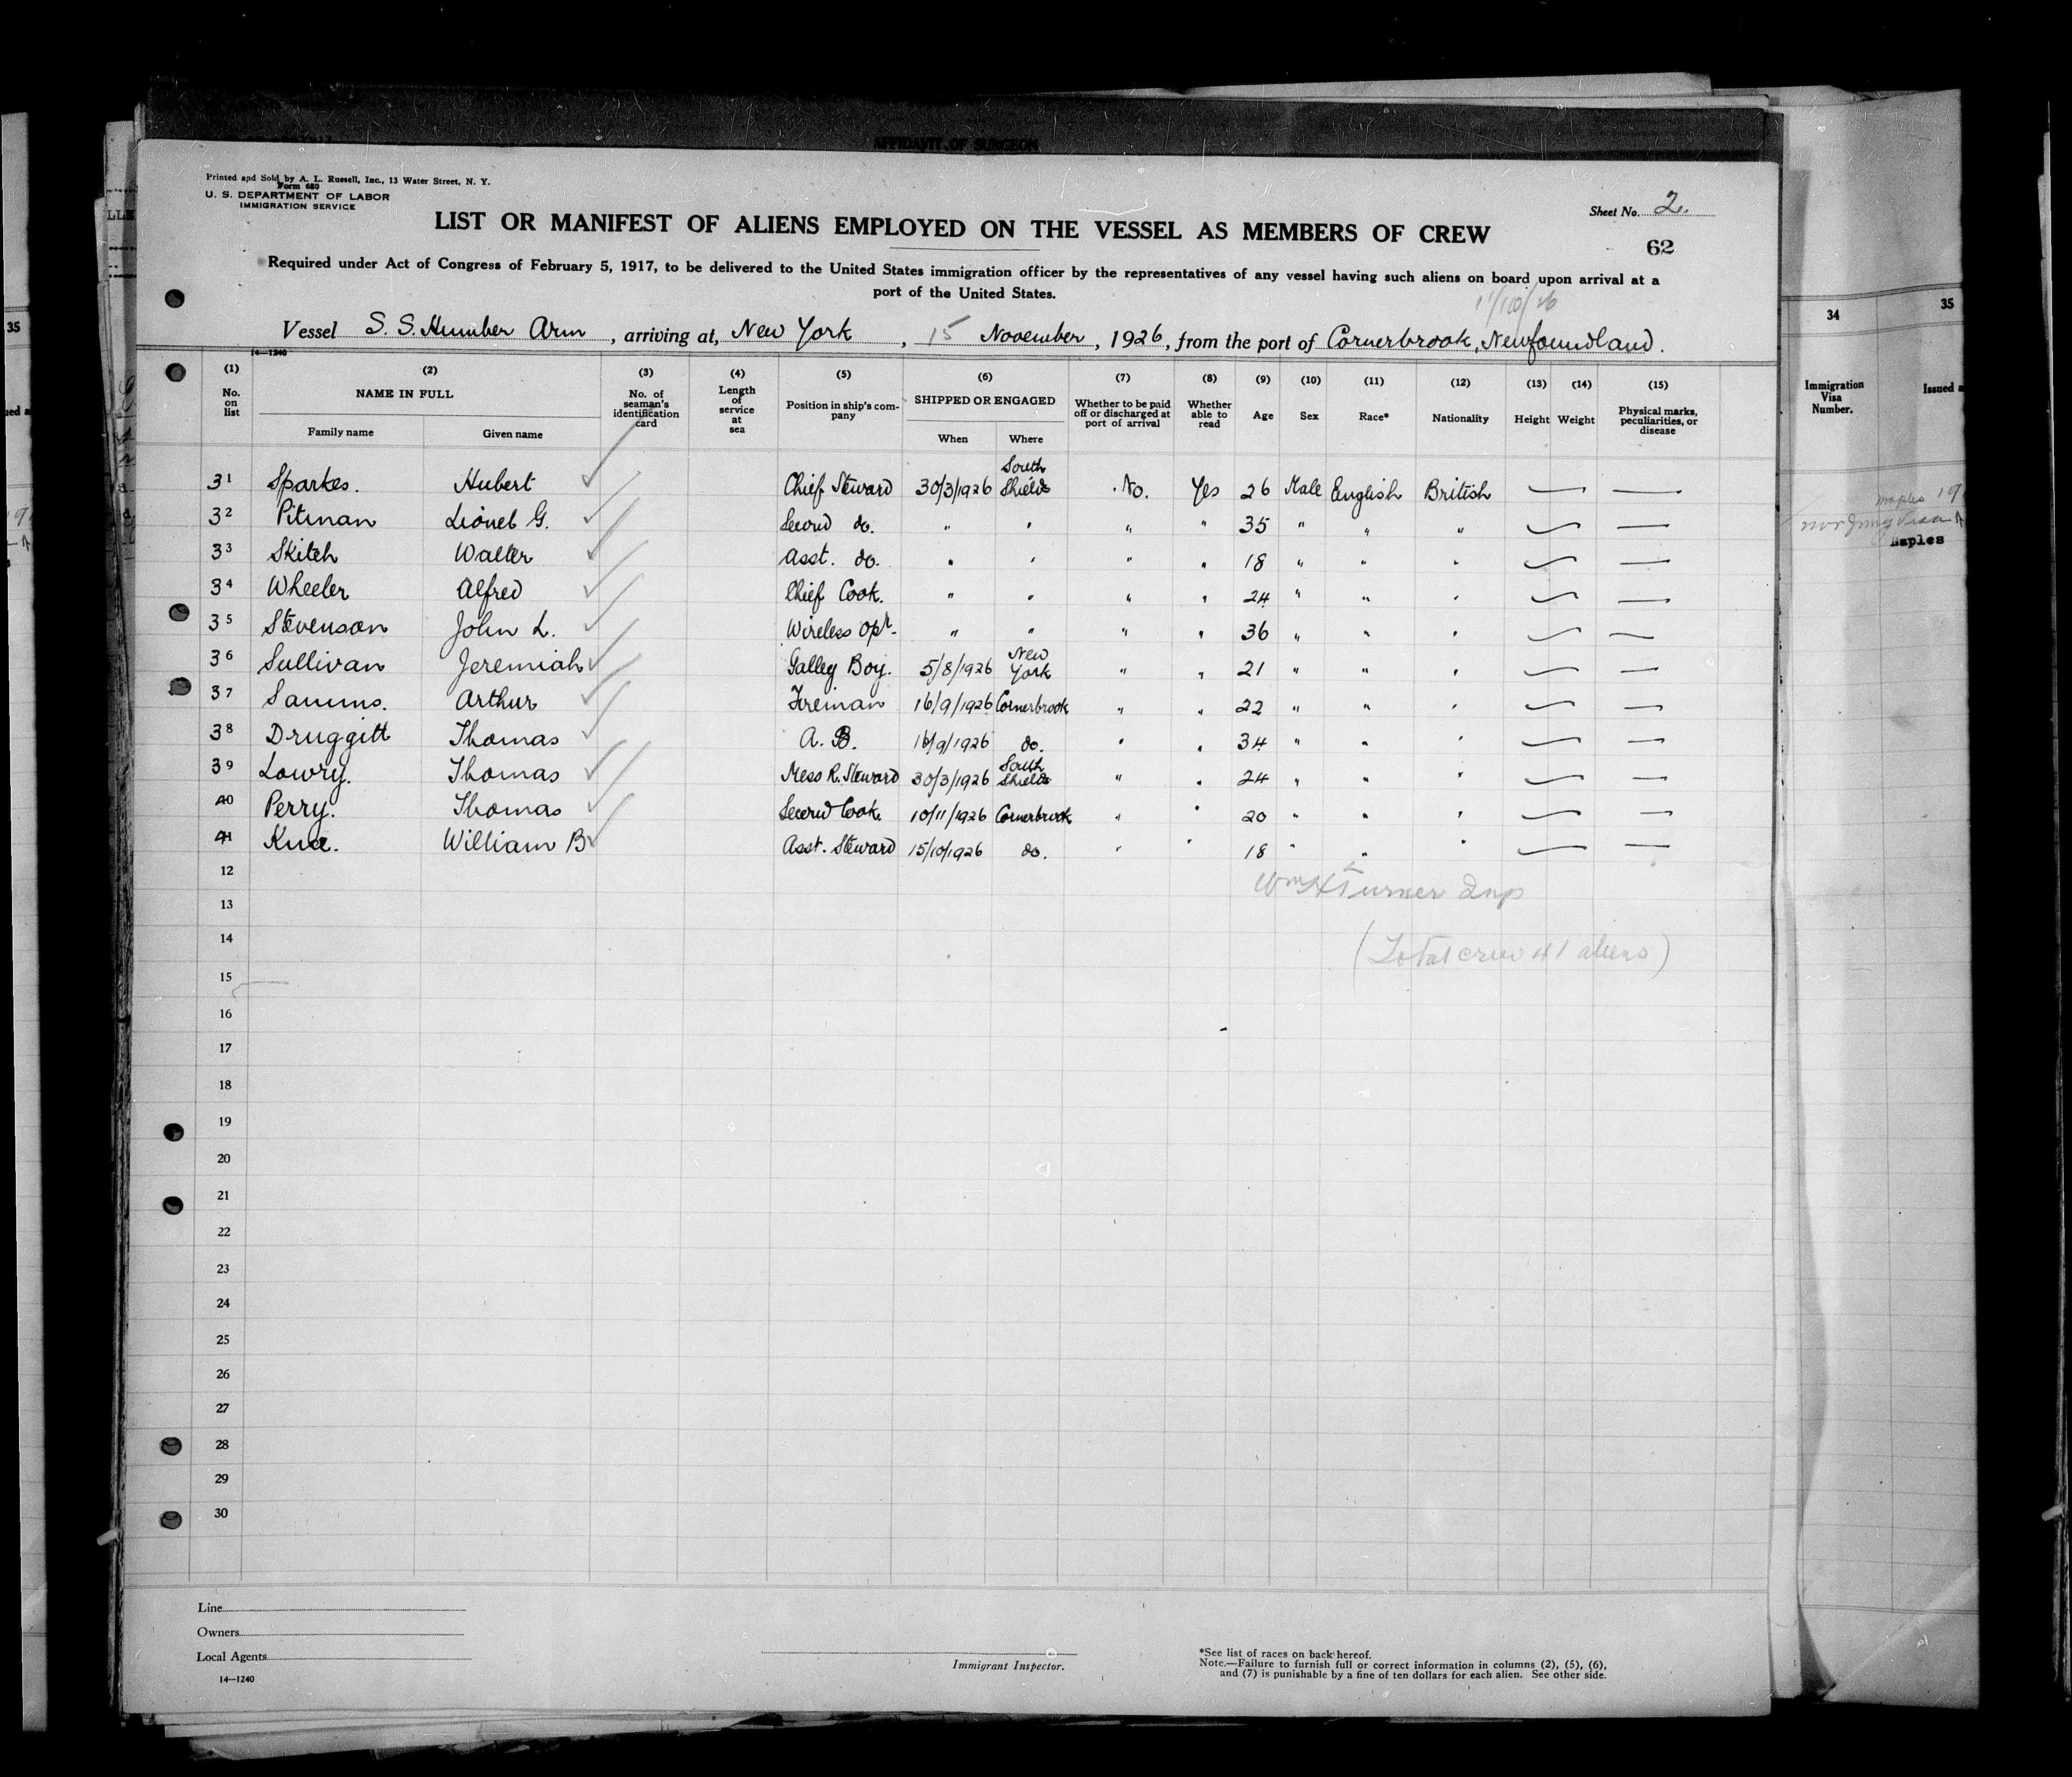 AFFIDAVIT OF SURGEON
Printed and Sold by A. L. Russell, Inc., 13 Water Street, N. Y.
Form 680
U. S. DEPARTMENT OF LABOR
IMMIGRATION SERVICE
Sheet No. 2.
LIST OR MANIFEST OF ALIENS EMPLOYED ON THE VESSEL AS MEMBERS OF CREW
62
Required under Act of Congress of February 5, 1917, to be delivered to the United States immigration officer by the representatives of any vessel having such aliens on board upon arrival at a
port of the United States.
Vessel S. S. Humber Arm, arriving at, New York, 15 November, 1926, from the port of Cornerbrook, Newfoundland.
14—1240
(1) (2) (3) (4) (5) (6) (7) (8) (9) (10) (11) (12) (13) (14) (15)
No. on list
NAME IN FULL
Family name Given name
No. of seaman's identification card
Length of service at sea
Position in ship's company
SHIPPED OR ENGAGED
When Where
Whether to be paid off or discharged at port of arrival
Whether able to read
Age Sex Race* Nationality Height Weight
Physical marks, peculiarities, or disease
31 Sparkes. Hubert Chief Steward 30/3/1926 South Shields No. Yes 26 Male English British
32 Pitman Lionel G. Second do. " " " " 35 " " "
33 Skitch Walter Asst. do. " " " " 18 " " "
34 Wheeler Alfred Chief Cook. " " " " 24 " " "
35 Stevenson John L. Wireless Opr. " " " " 36 " " "
36 Sullivan Jeremiah Galley Boy. 5/8/1926 New York " " 21 " " "
37 Samms. Arthur Fireman 16/9/1926 Cornerbrook " " 22 " " "
38 Druggitt Thomas A. B. 16/9/1926 do. " " 34 " " "
39 Lowry. Thomas Mess R. Steward 30/3/1926 South Shields " " 24 " " "
40 Perry. Thomas Second Cook. 10/11/1926 Cornerbrook " " 20 " " "
41 William B Asst. Steward 15/10/1926 do. " " 18 " " "
12
Wm H Turner Insp
13
14
(Total crew 41 aliens)
15
16
17
18
19
20
21
22
23
24
25
26
27
28
29
30
Line
Owners
Local Agents
14—1240
Immigrant Inspector.
*See list of races on back hereof.
Note.—Failure to furnish full or correct information in columns (2), (5), (6),
and (7) is punishable by a fine of ten dollars for each alien. See other side.
35
34
35
Immigration
Visa
Number.
Issued a
Naples